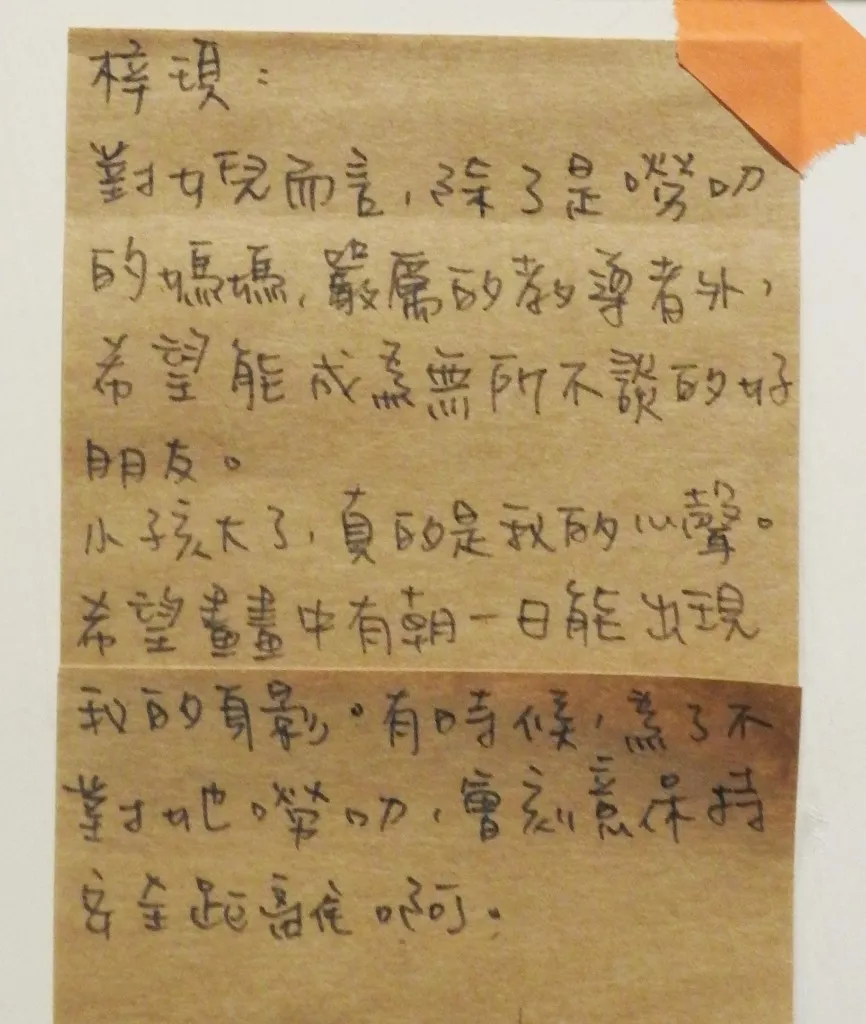 梓頊：
對女兒而言，除了是嘮叨
的媽媽，嚴厲的教導者外，
希望能成為無所不談的好
朋友。
小孩大了，真的是我的心聲。
希望畫畫中有朝一日能出現
我的身影。有時候，為了不
對她嘮叨，會刻意保持
安全距離 啊。